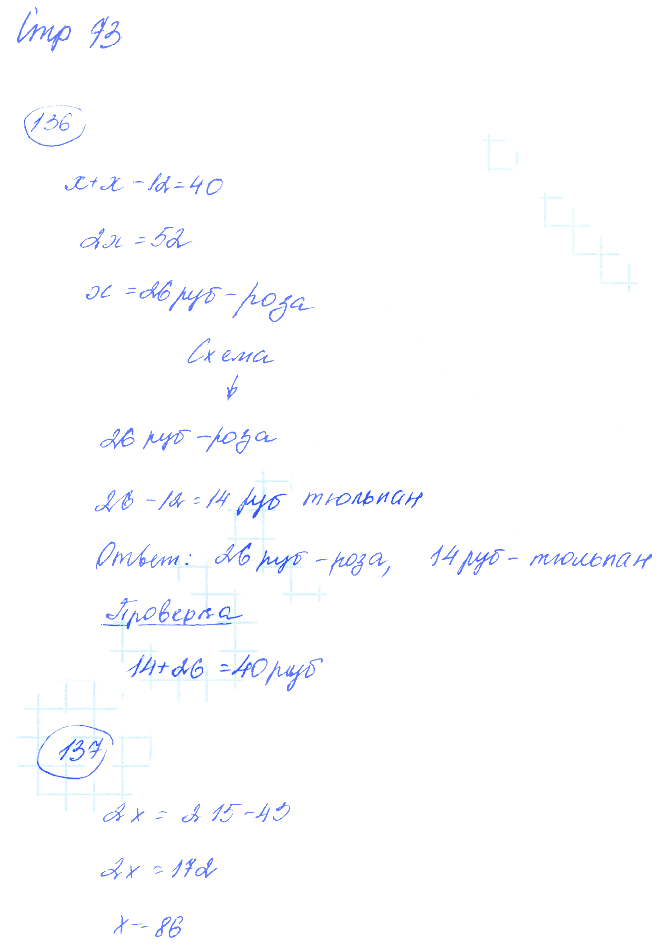 Стр 73
136
x+x-12=40
2x=52
x=26 руб-роза
Схема
↓
26 руб-роза
26-12=14 руб тюльпан
Ответ: 26 руб-роза, 14 руб-тюльпан
Проверка
14+26=40 руб
137
2x=215-43
2x=172
x=86